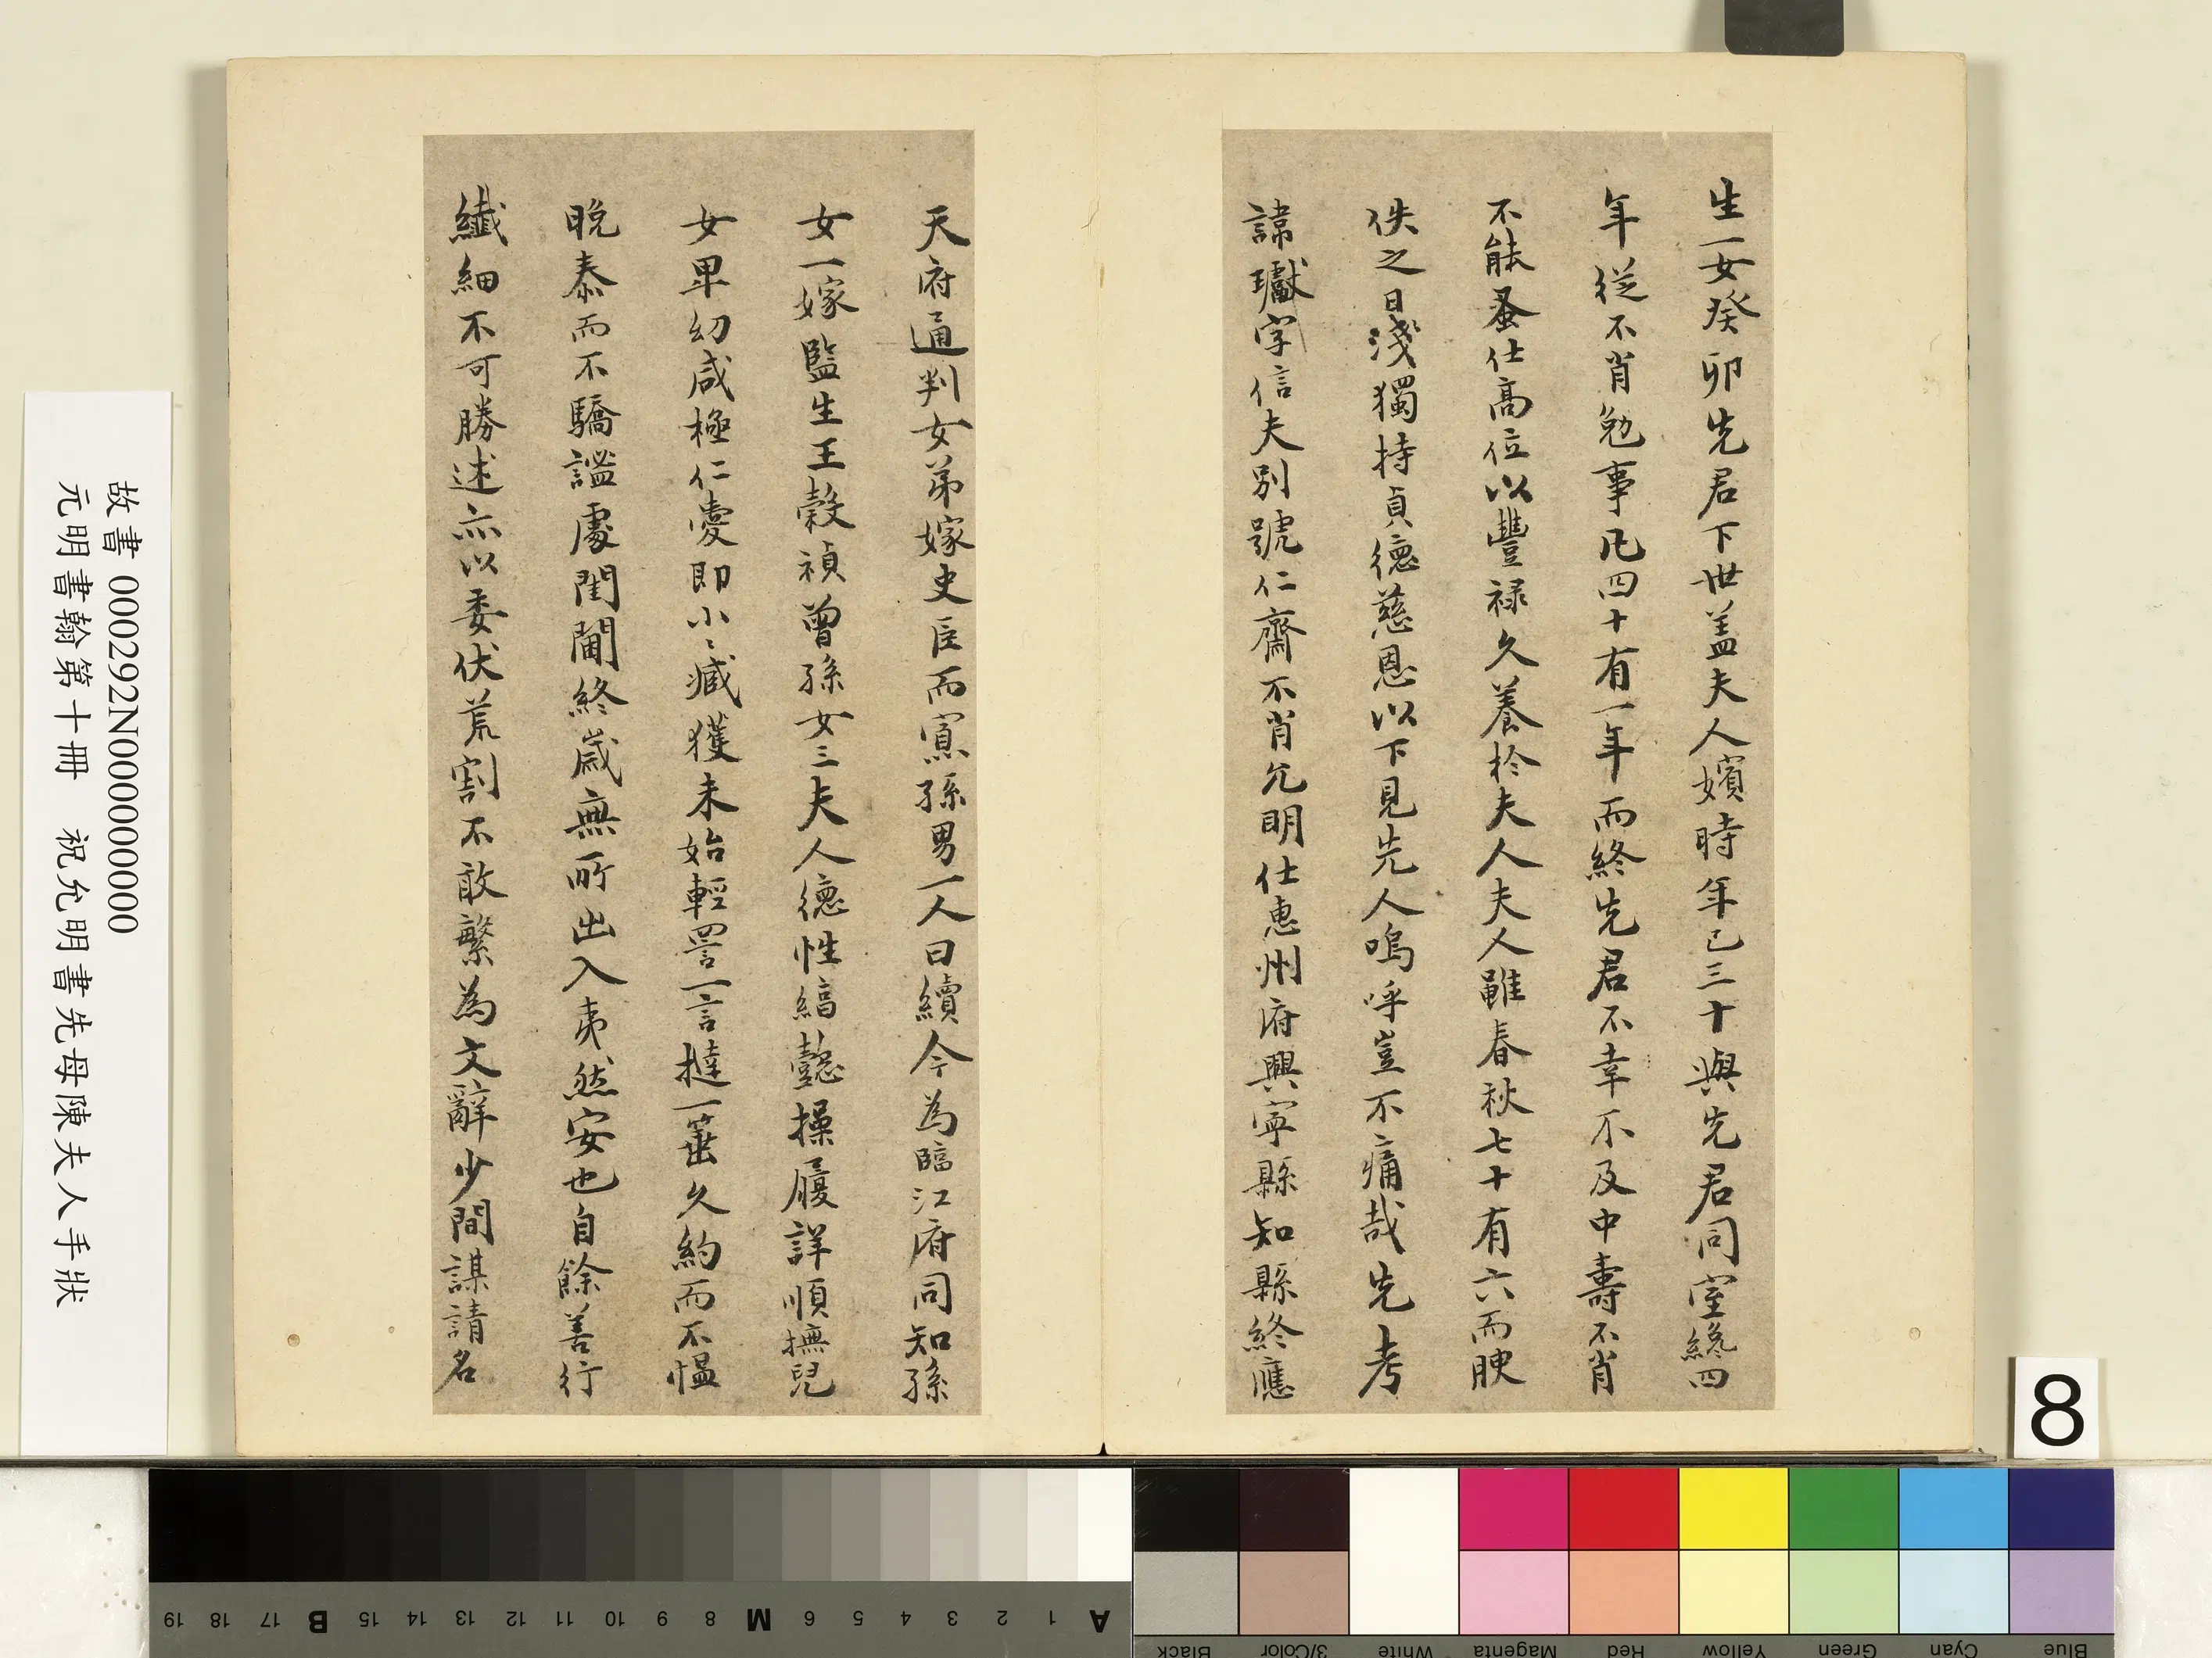 生一女癸卯先君下世盖夫人嬪時年已三十與先君同室纔四
年從不肖勉事凡四十有一年而終先君不幸不及中壽不肖
不能蚤仕高位以豐禄久養於夫人夫人雖春秋七十有六而腴
佚之日淺獨持貞德慈恩以下見先人嗚呼豈不痛哉先考
諱瓛字信夫別號仁齋不肖允明仕惠州府興寧縣知縣終應
天府通判女弟嫁史臣而寡孫男一人曰續今為臨江府同知孫
女一嫁監生王榖禎曾孫女三夫人德性縞懿操履詳順撫兒
女卑幼咸極仁愛即小〻臧獲未始輕詈一言撻一菙久約而不愠
晚泰而不驕謐處閨閫終歲無所出入夷然安也自餘善行
纖細不可勝述亦以委伏荒割不敢繫為文辭少間謀請名
故書 000292N000000000
元明書翰第十冊 祝允明書先母陳夫人手狀
8
A 1 2 3 4 5 6 M 8 9 10 11 12 13 14 15 B 17 18 19
Blue Cyan Green Yellow Red Magenta White 3/Color Black